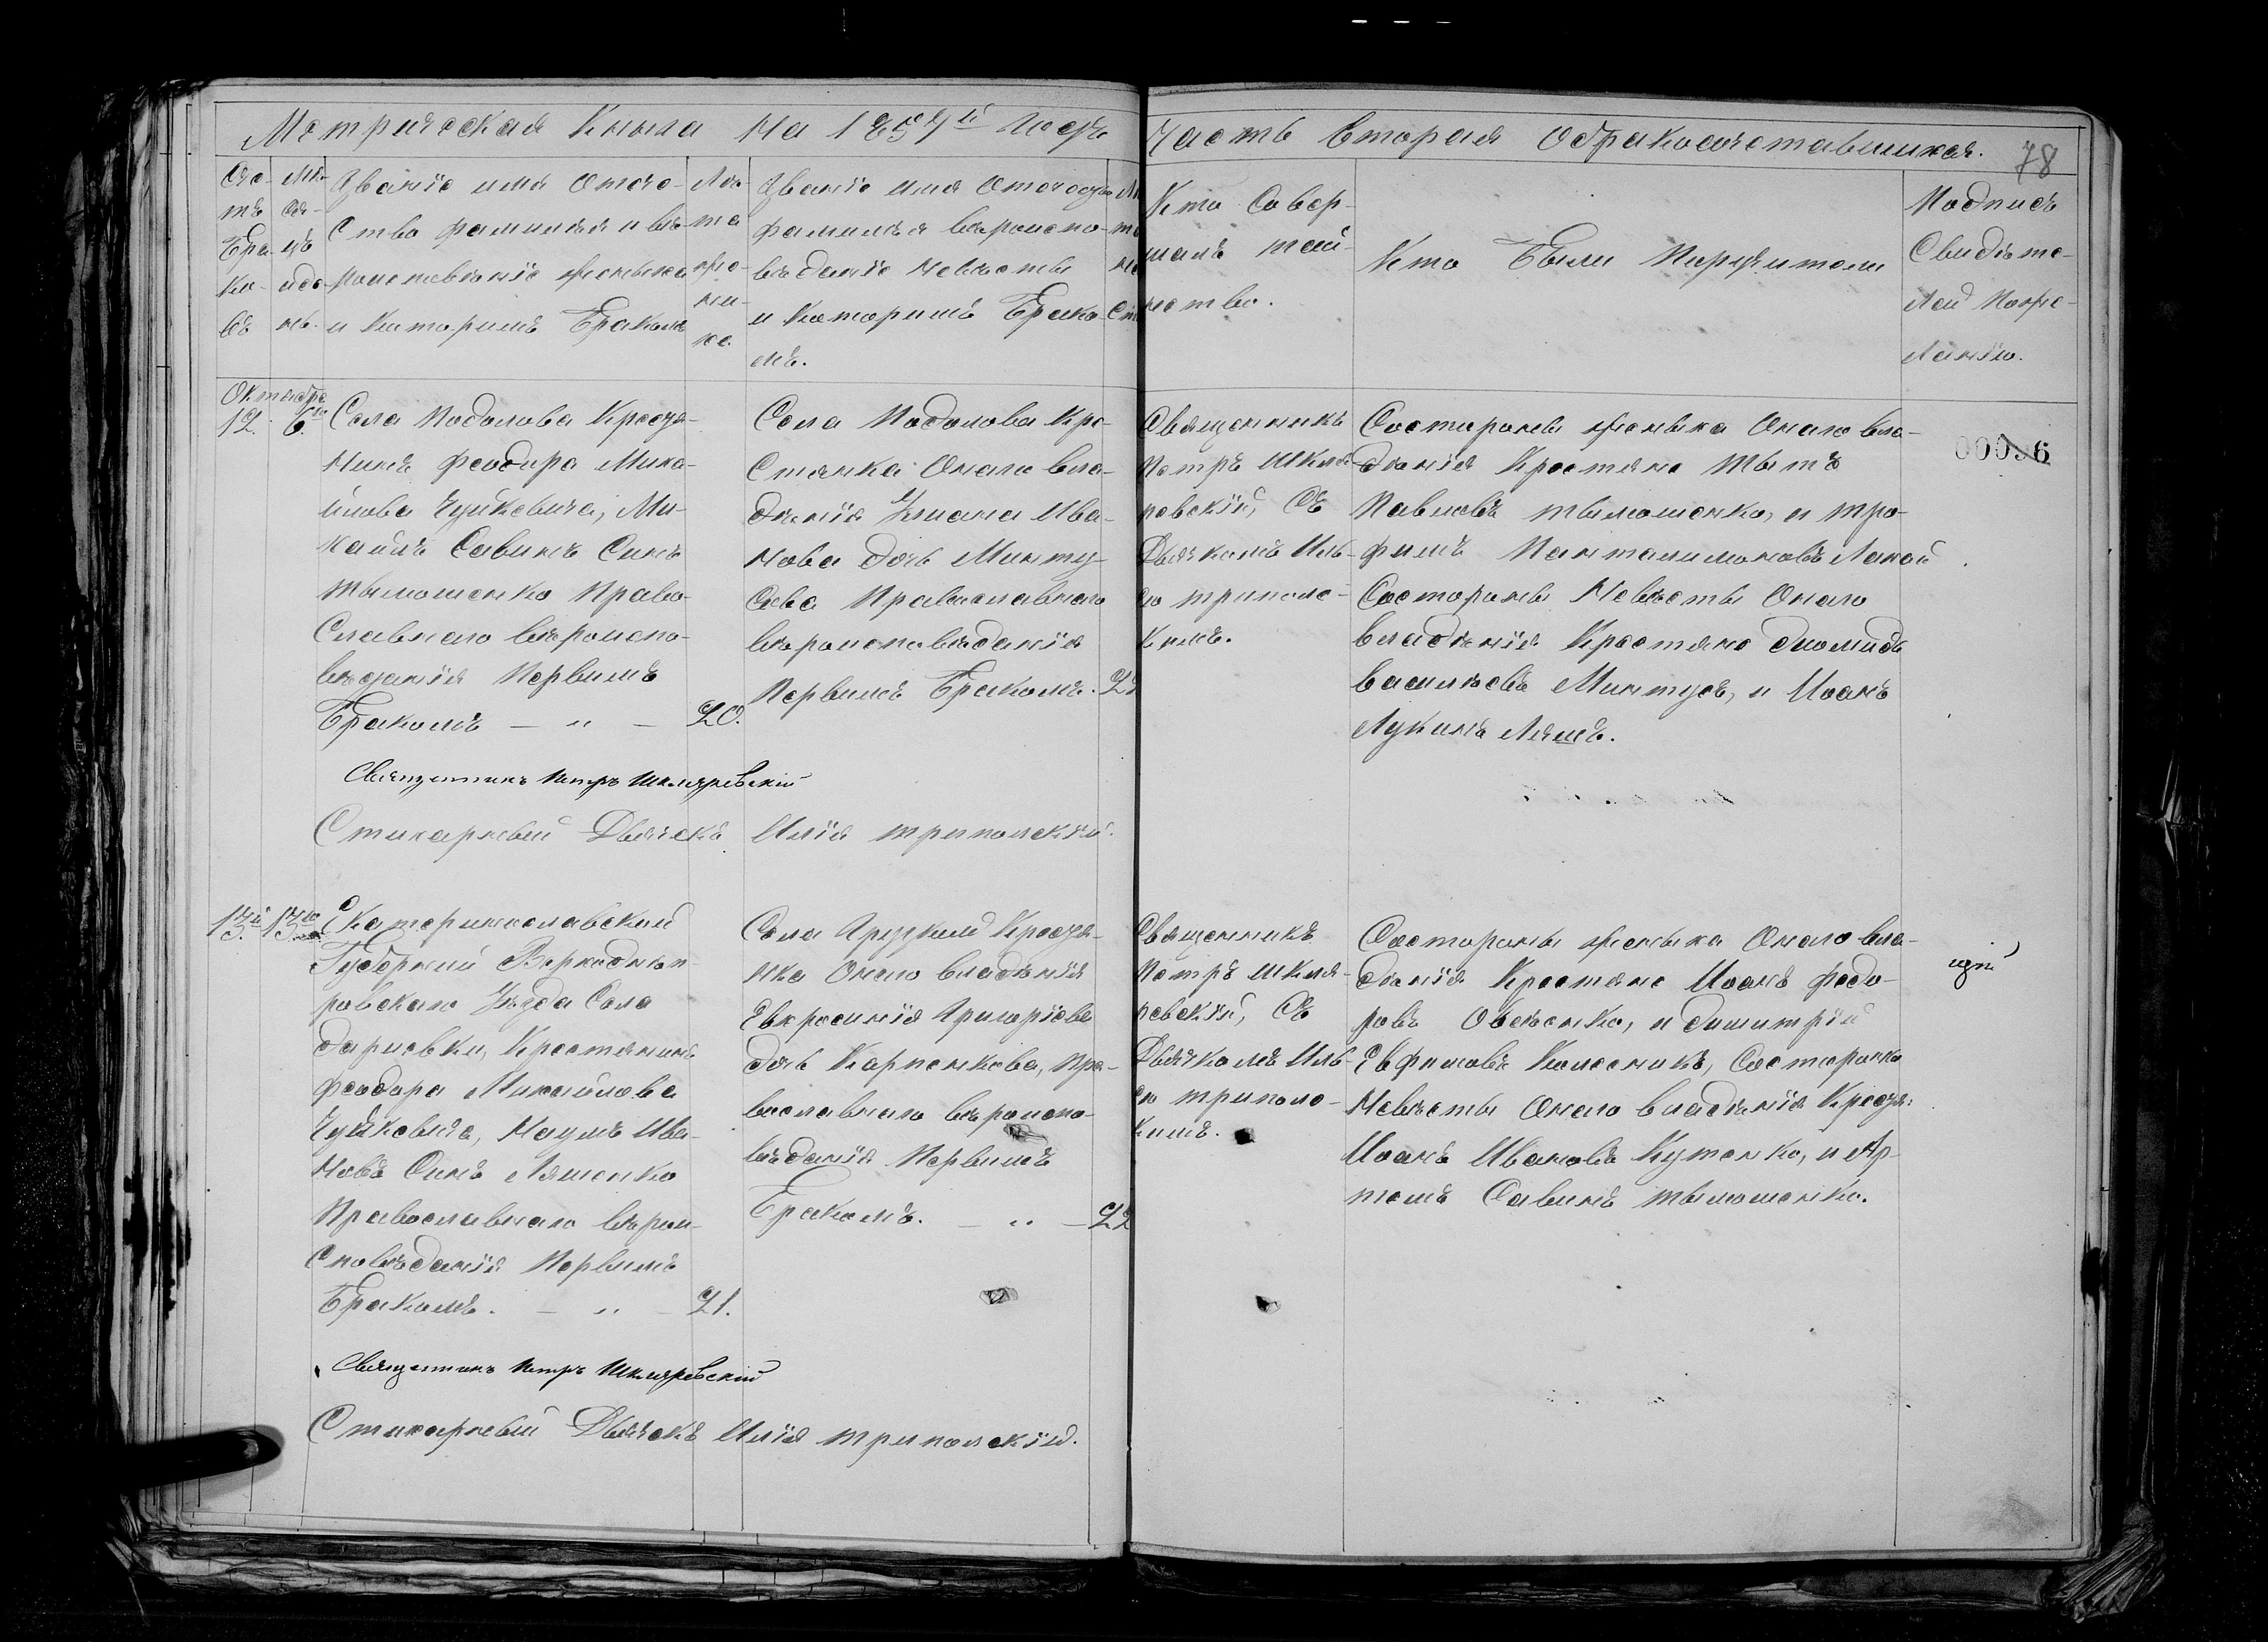 Метрическая Книга на 1857й Годъ
Часть Вторая Обракосочетавшихся.
78
Сче-
тъ
Бра-
ко-
въ
Мѣ-
ся-
цъ
и де-
нь.
Званіе имя Отече-
Ство фамилія и вѣ-
роисповѣданіе жениха
и Которимъ Бракомъ
Лѣ-
та
же-
ни-
ха.
Званіе имя Отечество
фамилія вѣроиспо-
вѣданіе Невѣсты
и Которимъ Брако-
мъ.
Кто Совер-
шалъ таи-
нство.
Кто Были Поручители
Подпись
Свидѣте-
лей Поже-
ланію.
Октября
12. 6го
Села Подолова Крестя-
Нинъ Феодора Миха-
йлова Чуйкевича, Ми-
хаилъ Савинъ Синъ
тымошенко Право-
Славнаго вѣроиспо-
вѣданія Первимъ
Бракомъ — „ — 20.
Села Подолова Кре-
Стянка Онаго вла-
дѣнія Уліана Ива-
Нова дочь Минту-
сова Православнаго
вѣроисповѣданія
Первимъ Бракомъ.
Священникъ
Петръ Шкля-
ревскій, Съ
Дьячкомъ Иль-
ею триполс-
Кимъ.
Состороны жениха Онаго вла-
дѣнія Крестяне Титъ
Павловъ тымошенко, и тро-
фимъ Пантелимоновъ Лакой
Состороны Невѣсты Онаго
владѣнія Крестяне диомидъ
васильевъ Минтусъ, и Иоанъ
Лукинъ Ляшъ.
00096
Священникъ Петръ Шкляревскій
Стихарный Дьячекъ Илія трипольскій.
13й 13го
Екатеринославской
Губерніи Верходнѣп-
ровскаго Уѣзда Села
дариевки, Крестянинъ
Феодора Михайлова
Чуйкевича, Наумъ Ива-
Новъ Синъ Ляшенко
Православнаго вѣрои-
Сповѣданія Первимъ
Бракомъ. — „ — 21.
Села Грузкой Крестя-
нка Онаго владѣнія
Евфросинія Григоріева
дочь Карпенкова, Пра-
вославнаго вѣроиспо-
вѣданія Первимъ
Бракомъ. — „ — 22
Священникъ
Петръ Шкля-
ревскій, Съ
Дьячкомъ Иль-
ею триполс-
Кимъ.
Состороны жениха Онаго вла-
дѣнія Крестяне Иоанъ Федо-
ровъ Овсѣенко, и димитрій
Евфимовъ Колесникъ, Состороны
Невѣсты Онаго владѣнія Крестя:
Иоанъ Ивановъ Кутенко, и Ар-
темъ Савинъ тымошенко.
Священникъ Петръ Шкляревскій
Стихарный Дьячекъ Илія трипольскій.